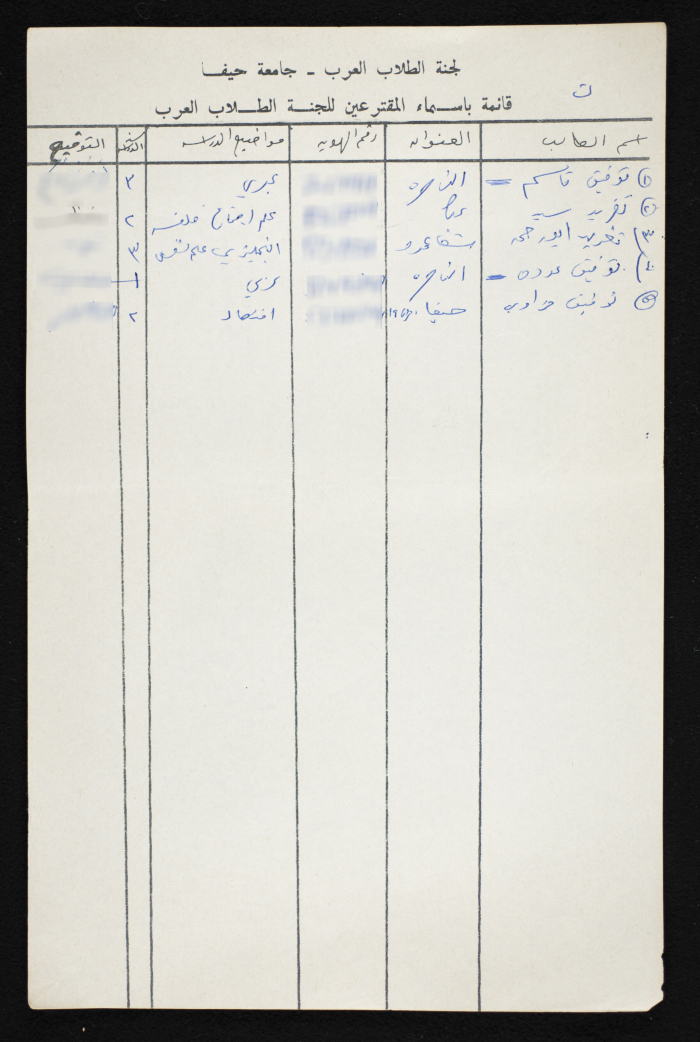 لجنة الطلاب العرب - جامعة حيفا
ت
قائمة باسماء المقترعين للجنة الطلاب العرب
اسم الطالب العنوان رقم الهوية مواضيع الدراسة السنة الدراسية التوقيع
١) توفيق قاسم = الناصرة عبري ٣
٢) تغريد سيد عكا علم اجتماع فلسفة ٢
٣) تغريد ابو رحمة شفاعمرو انجليزي علم نفس ٣
٤) توفيق عودة = الناصرة عربي ١
٥) توفيق حيفا اقتصاد ٢